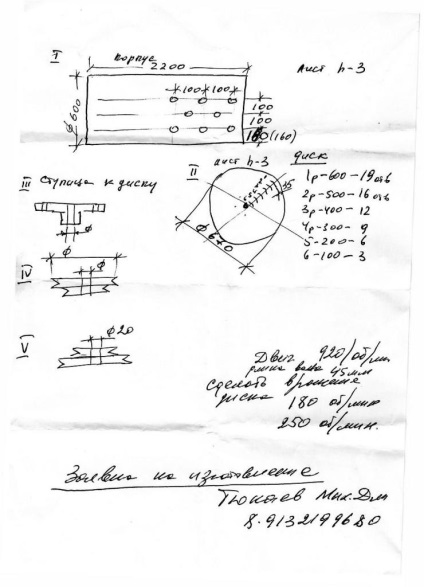 I
корпус
2200
Лист h-3
ф600
100 100
100
100
100(160)
III Ступица к диску
II
лист h-3
диск
35
1р-600-19отв
2р-500-16отв
3р-400-12
4р-300-9
5-200-6
6-100-3
ф
ф670
IV
ф
V
ф20
Двиг 920/об/мин
длина вала 45мм
сделать вращение
диска 180 об/мин
250 об/мин.
Заявка на изготовление
Тюкаев Мих.Дм
8.9132199680